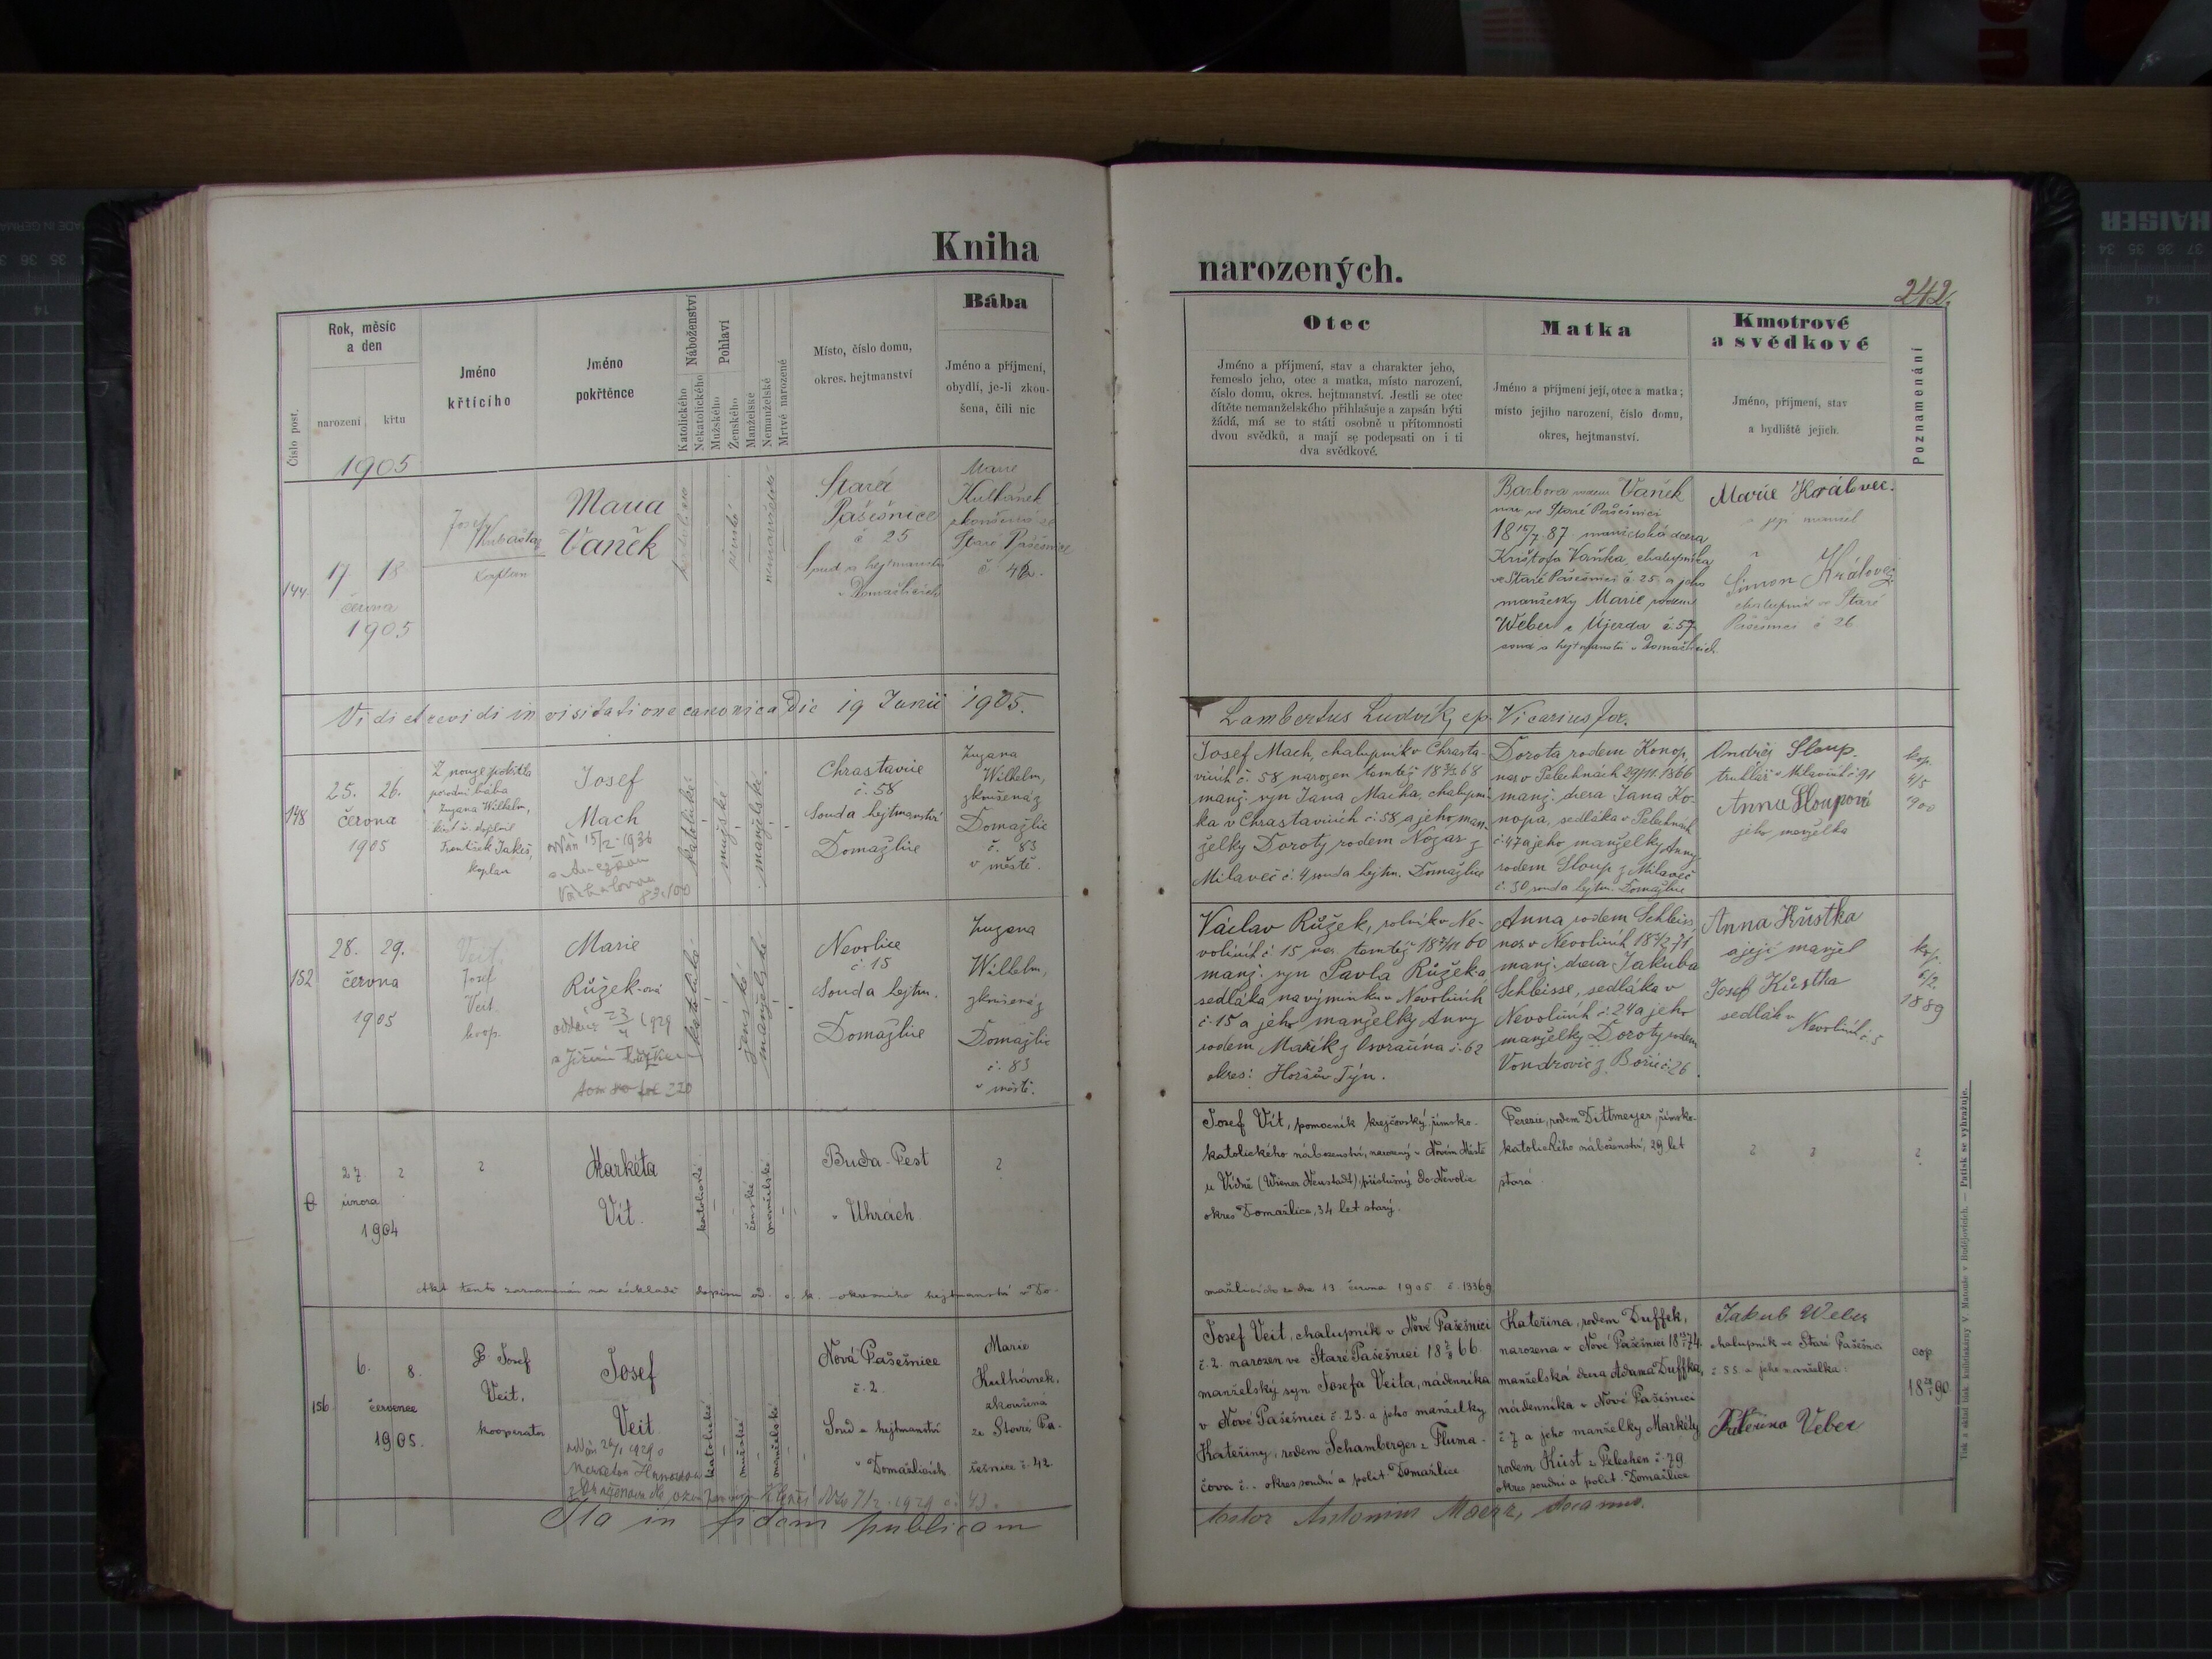 Kniha
narozených.
242.
Číslo post.
Rok, měsíc
a den
narození
křtu
Jméno
křtícího
Jméno
pokřtěnce
Náboženství
Katolického
Nekatolického
Pohlaví
Mužského
Ženského
Manželské
Nemanželské
Mrtvě narozené
Místo, číslo domu,
okres. hejtmanství
Bába
Jméno a příjmení,
obydlí, je-li zkou-
šena, čili nic
Otec
Jméno a příjmení, stav a charakter jeho,
řemeslo jeho, otec a matka, místo narození,
číslo domu, okres. hejtmanství. Jestli se otec
dítěte nemanželského přihlašuje a zapsán býti
žádá, má se to státi osobně u přítomnosti
dvou svědků, a mají se podepsati on i ti
dva svědkové.
Matka
Jméno a příjmení její, otec a matka;
místo jejího narození, číslo domu,
okres, hejtmanství.
Kmotrové
a svědkové
Jméno, příjmení, stav
a bydliště jejich.
Poznamenání
1905
144.
17 18
června
1905
Josef
Kubaštaz
kaplan
Maria
Vaněk
katolické
ženské
nemanželské
Stará
Pašešnice
č 25
Soud a hejtmanství
v Domažlicích
Marie
Kulhánek
zkoušená ze
Staré Pašešnice
č 42.
Barbora rodem Vaněk
nar. ve Staré Pašešnici
18 15/7 87 manželská dcera
Krištofa Vaňka, chalupníka
ve Staré Pašešnici č. 25 a jeho
manželky Marie rodem
Weber z Újezda č. 57
soud a hejtmanství v Domažlicích
Marie Královec.
a její manžel
Šimon Královec
chalupník ve Staré
Pašešnici č 26
Vidi et revidi in visitatione canonica Die 19 Junii 1905.
Lambertus Ludvík, ep. Vicarius for.
148
25. 26.
června
1905
Z nouze pokřtila
porodní bába
Zuzana Wilhelm,
křest sv. doplnil
František Jakeš,
kaplan
Josef
Mach
oddán 15/2 1936
katolické
mužské
manželské
Chrastavice
č. 58
Souda hejtmanství
Domažlice
Zuzana
Wilhelm,
zkoušená z
Domažlic
č. 83
v městě.
Josef Mach, chalupník v Chrasta-
vicích č. 58 narozen tamtéž 18 68
manž. syn Jana Macha, chalupní-
ka v Chrastavicích č. 58, a jeho man-
želky Doroty rodem Nozar z
Milaveč č. 4 souda hejtm. Domažlice
Dorota rodem Konop,
nar. v Pelechnách 29/11 1866
manž. dcera Jana Ko-
nopa, sedláka v Pelechnách
č. 47 a jeho manželky Anny
rodem Sloup z Milaveč
č. 30 souda hejtm. Domažlice
Ondřej Sloup.
truhlář v Milavčích č. 91
Anna Sloupová
jeho manželka
kop.
4/5
1900
152
28. 29.
června
1905
Veit.
Josef
Veit.
koop.
Marie
Růžek-ová
1929
katolické
ženské
manželské
Nevolice
č. 15
Souda hejtm.
Domažlice
Zuzana
Wilhelm,
zkoušená z
Domažlic
č. 83
v městě.
Václav Růžek, rolník v Ne-
volicích č. 15 nar. tamtéž 18 60
manž. syn Pavla Růžeka
sedláka na výminku v Nevolicích
č. 15 a jeho manželky Anny
rodem Mařík z Ovračína č. 62
okres: Horšův Týn.
Anna rodem Schleiss,
nar. v Nevolicích 18 71,
manž. dcera Jakuba
Schleisse, sedláka v
Nevolicích č. 24 a jeho
manželky Doroty rodem
Vondrovic z Bořic č. 26.
Anna Kůstka
a její manžel
Josef Kůstka
sedlák v
Nevolicích č. 5
kop.
6/2.
1889
27 ?
února
1904
?
Markéta
Vít.
katolické
ženské
manželské
Buda-Pest
v Uhrách
?
Josef Vít, pomocník krejčovský, římsko-
katolického náboženství, narozený v Novém Městě
u Vídně (Wiener Neustadt), příslušný do Nevolic
okres Domažlice, 34 let starý.
Terezie, rodem Dittmeyer, římsko-
katolického náboženství, 29 let
stará
? ? ?
Akt tento zaznamenán na základě dopisu od c. k. okresního hejtmanství v Do-
mažlicích ze dne 13 června 1905 č. 13369
156.
6. 8.
července
1905.
P Josef
Veit,
kooperator
Josef
Veit
oddán 26/1 1929
katolické
mužské
manželské
Nová Pašešnice
č. 2
Soud a hejtmanství
v Domažlicích
Marie
Kulhánek,
zkoušená
ze Staré Pa-
šešnice č. 42
Josef Veit, chalupník v Nové Pašešnici
č. 2. narozen ve Staré Pašešnici 18 66.
manželský syn Josefa Veita, nádenníka
v Nové Pašešnici č. 23. a jeho manželky
Kateřiny, rodem Schamberger z Tluma-
čova č. - okres soudní a polit. Domažlice
Kateřina, rodem Duffek,
narozena v Nové Pašešnici 18 74.
manželská dcera Adama Duffka,
nádenníka v Nové Pašešnici
č 7 a jeho manželky Markéty
rodem Küst z Pelechen č. 79
okres soudní a polit. Domažlice
Jakub Weber
chalupník ve Staré Pašešnici
č 55. a jeho manželka
Kateřina Veber
cop
18 90
Ita in fidem publicam
testor Antonius Maerz, decanus.
Tisk a sklad tisk. knihtiskárny V. Matouše v Budějovicích. — Patisk se vyhražuje.
KAISER
MADE IN GERMANY